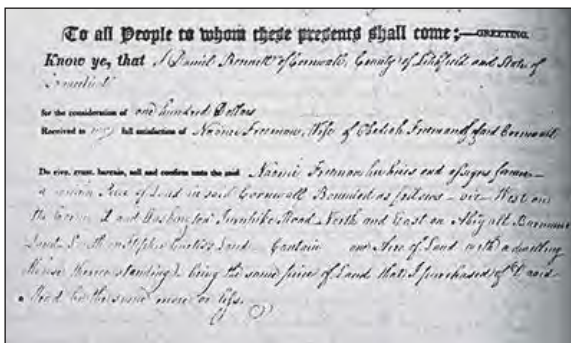 To all People to whom these presents shall come;—GREETING.
Know ye, that I Daniel Bonnett of Cornwall, County of Litchfield and State of
Connecticut
for the consideration of one hundred Dollars
Received to my full satisfaction of Naomi Freeman, Wife of Obediah Freeman of said Cornwall
Do give, grant, bargain, sell and confirm unto the said Naomi Freeman her heirs and assigns forever
a certain Piece of Land in said Cornwall Bounded as follows viz West on
the and Washington Turnpike Road North and East on
Land South on Land Contain one Acre of Land with a dwelling
House thereon standing being the same piece of Land that I purchased of
be the same more or less.